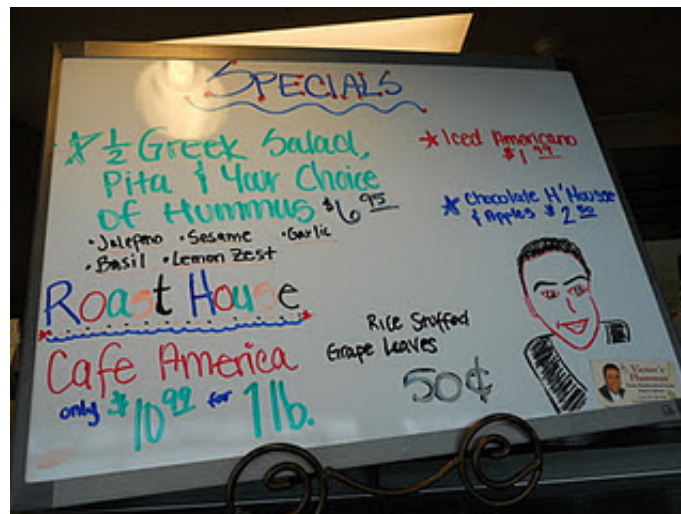 SPECIALS
1/2 Greek Salad,
Pita & Your Choice
of Hummus $6 95
• Jalepeno • Sesame • Garlic
• Basil • Lemon Zest
Roast House
Cafe America
only $10 99 for 1 lb.
Iced Americano
$1 99
Chocolate M'Mousse
& Apples $2 50
Rice Stuffed
Grape Leaves
50¢
Victor's
Hummus